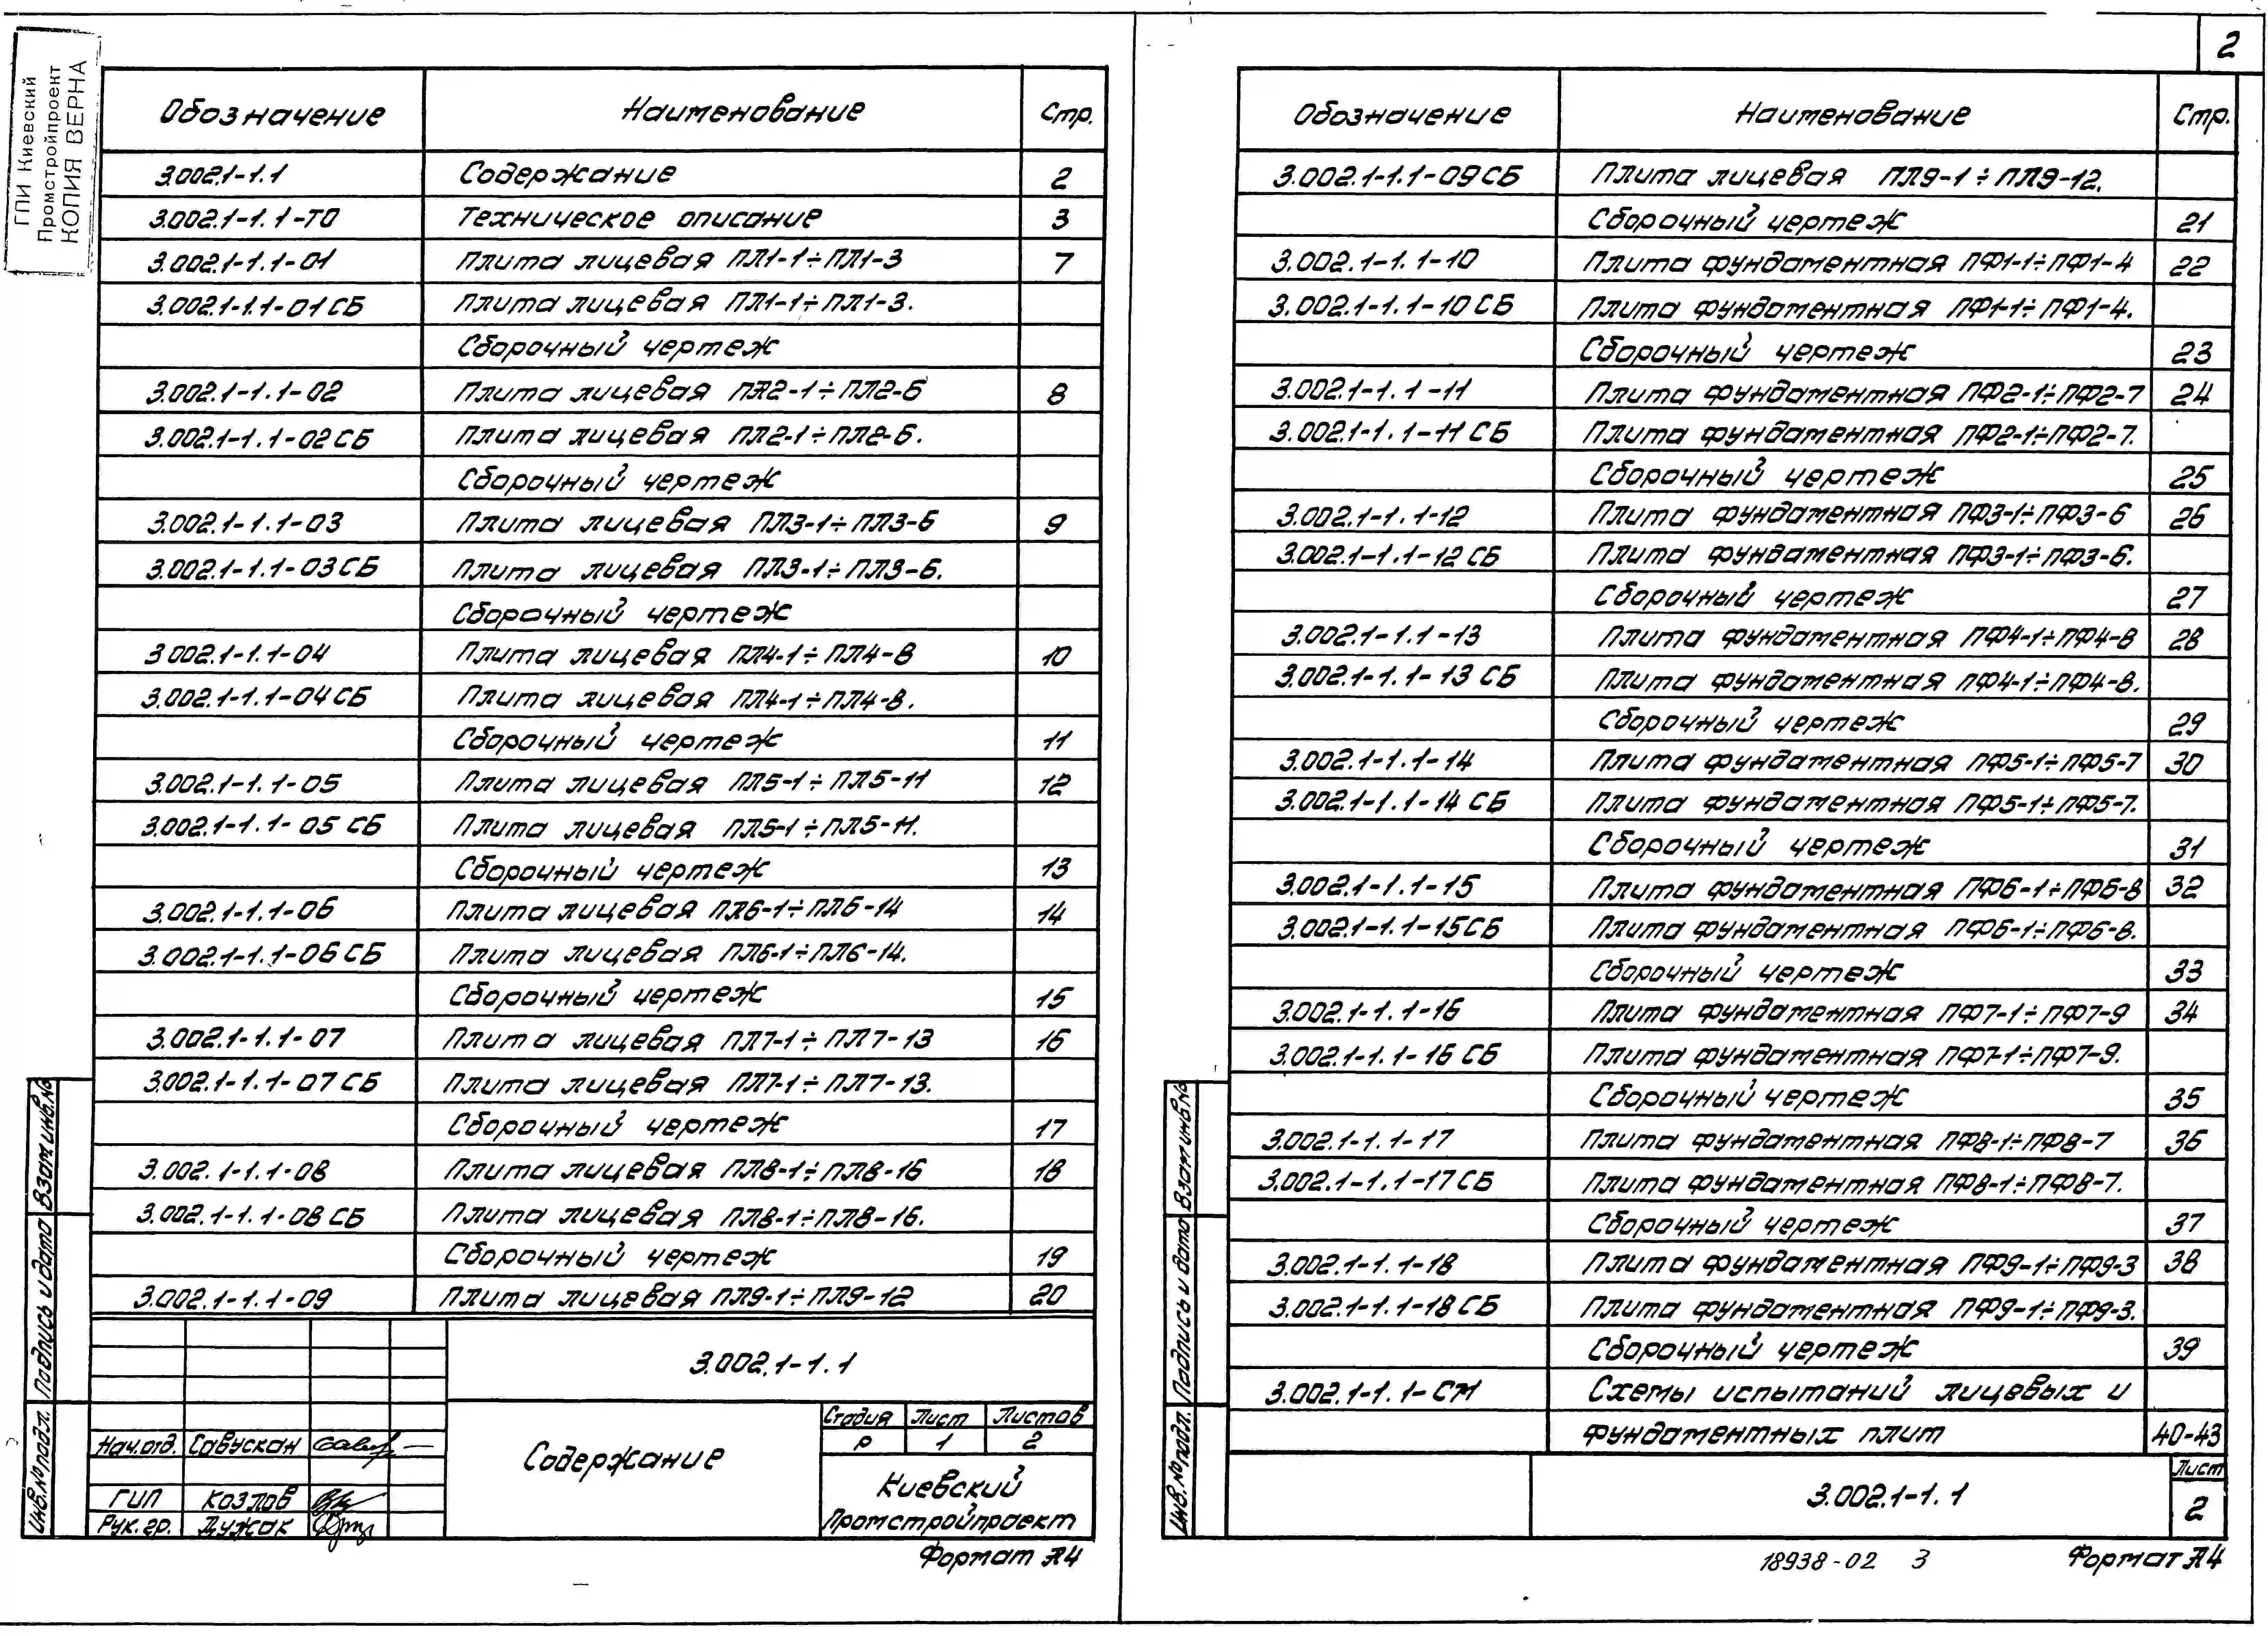 ГПИ Киевский
Промстройпроект
КОПИЯ ВЕРНА
Обозначение Наименование Стр.
3.002.1-1.1 Содержание 2
3.002.1-1.1-ТО Техническое описание 3
3.002.1-1.1-01 Плита лицевая ПЛ1-1÷ПЛ1-3 7
3.002.1-1.1-01СБ Плита лицевая ПЛ1-1÷ПЛ1-3.
Сборочный чертеж
3.002.1-1.1-02 Плита лицевая ПЛ2-1÷ПЛ2-6 8
3.002.1-1.1-02СБ Плита лицевая ПЛ2-1÷ПЛ2-6.
Сборочный чертеж
3.002.1-1.1-03 Плита лицевая ПЛ3-1÷ПЛ3-6 9
3.002.1-1.1-03СБ Плита лицевая ПЛ3-1÷ПЛ3-6.
Сборочный чертеж
3 002.1-1.1-04 Плита лицевая ПЛ4-1÷ПЛ4-8 10
3.002.1-1.1-04СБ Плита лицевая ПЛ4-1÷ПЛ4-8.
Сборочный чертеж 11
3.002.1-1.1-05 Плита лицевая ПЛ5-1÷ПЛ5-11 12
3.002.1-1.1-05 СБ Плита лицевая ПЛ5-1÷ПЛ5-11.
Сборочный чертеж 13
3.002.1-1.1-06 Плита лицевая ПЛ6-1÷ПЛ6-14 14
3.002.1-1.1-06СБ Плита лицевая ПЛ6-1÷ПЛ6-14.
Сборочный чертеж 15
3.002.1-1.1-07 Плита лицевая ПЛ7-1÷ПЛ7-13 16
3.002.1-1.1-07СБ Плита лицевая ПЛ7-1÷ПЛ7-13.
Сборочный чертеж 17
3.002.1-1.1-08 Плита лицевая ПЛ8-1÷ПЛ8-16 18
3.002.1-1.1-08СБ Плита лицевая ПЛ8-1÷ПЛ8-16.
Сборочный чертеж 19
3.002.1-1.1-09 Плита лицевая ПЛ9-1÷ПЛ9-12 20
3.002.1-1.1
Содержание
Стадия Лист Листов
Р 1 2
Нач.отд. Савускан
ГИП Козлов
Рук.гр. Дужак
Киевский
Промстройпроект
Формат А4
Взам инв.№
Подпись и дата
Инв.№подл.
2
Обозначение Наименование Стр.
3.002.1-1.1-09СБ Плита лицевая ПЛ9-1÷ПЛ9-12.
Сборочный чертеж 21
3.002.1-1.1-10 Плита фундаментная ПФ1-1÷ПФ1-4 22
3.002.1-1.1-10СБ Плита фундаментная ПФ1-1÷ПФ1-4.
Сборочный чертеж 23
3.002.1-1.1-11 Плита фундаментная ПФ2-1÷ПФ2-7 24
3.002.1-1.1-11СБ Плита фундаментная ПФ2-1÷ПФ2-7.
Сборочный чертеж 25
3.002.1-1.1-12 Плита фундаментная ПФ3-1÷ПФ3-6 26
3.002.1-1.1-12СБ Плита фундаментная ПФ3-1÷ПФ3-6.
Сборочный чертеж 27
3.002.1-1.1-13 Плита фундаментная ПФ4-1÷ПФ4-8 28
3.002.1-1.1-13 СБ Плита фундаментная ПФ4-1÷ПФ4-8.
Сборочный чертеж 29
3.002.1-1.1-14 Плита фундаментная ПФ5-1÷ПФ5-7 30
3.002.1-1.1-14 СБ Плита фундаментная ПФ5-1÷ПФ5-7.
Сборочный чертеж 31
3.002.1-1.1-15 Плита фундаментная ПФ6-1÷ПФ6-8 32
3.002.1-1.1-15СБ Плита фундаментная ПФ6-1÷ПФ6-8.
Сборочный чертеж 33
3.002.1-1.1-16 Плита фундаментная ПФ7-1÷ПФ7-9 34
3.002.1-1.1-16 СБ Плита фундаментная ПФ7-1÷ПФ7-9.
Сборочный чертеж 35
3.002.1-1.1-17 Плита фундаментная ПФ8-1÷ПФ8-7 36
3.002.1-1.1-17СБ Плита фундаментная ПФ8-1÷ПФ8-7.
Сборочный чертеж 37
3.002.1-1.1-18 Плита фундаментная ПФ9-1÷ПФ9-3 38
3.002.1-1.1-18СБ Плита фундаментная ПФ9-1÷ПФ9-3.
Сборочный чертеж 39
3.002.1-1.1-СМ Схемы испытаний лицевых и
фундаментных плит 40-43
3.002.1-1.1
Лист
2
Взам инв№
Подпись и дата
Инв.№подл.
18938-02 3
Формат А4